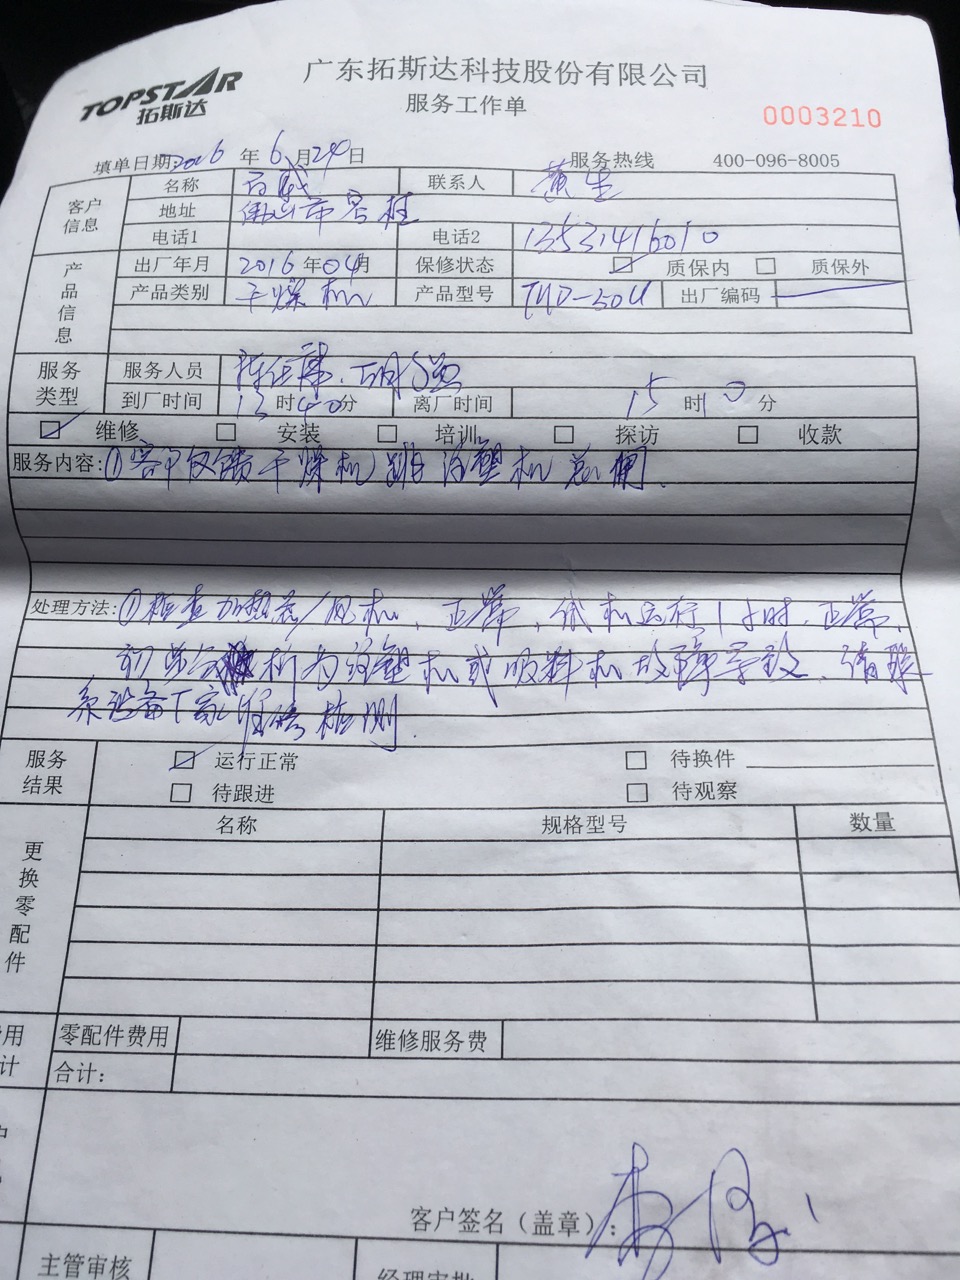 TOPSTAR
拓斯达
广东拓斯达科技股份有限公司
服务工作单
0003210
填单日期:2016年6月24日 服务热线 400-096-8005
客户信息
名称 百威 联系人 黄生
地址 佛山市容桂
电话1 电话2 13531416010
产品信息
出厂年月 2016年04月 保修状态 质保内 质保外
产品类别 干燥机 产品型号 THD-50U 出厂编码
服务类型
服务人员
到厂时间 13时40分 离厂时间 15时10分
维修 安装 培训 探访 收款
服务内容:①客户反馈干燥机跳注塑机总闸.
处理方法:①检查加热器/风机、正常,试机运行1小时,正常,
初步分析为注塑机或吸料机故障导致,请联
系设备厂家维修检测.
服务结果
运行正常 待换件
待跟进 待观察
更换零配件
名称 规格型号 数量
用
计
零配件费用 维修服务费
合计:
客户签名(盖章):
主管审核 经理审批